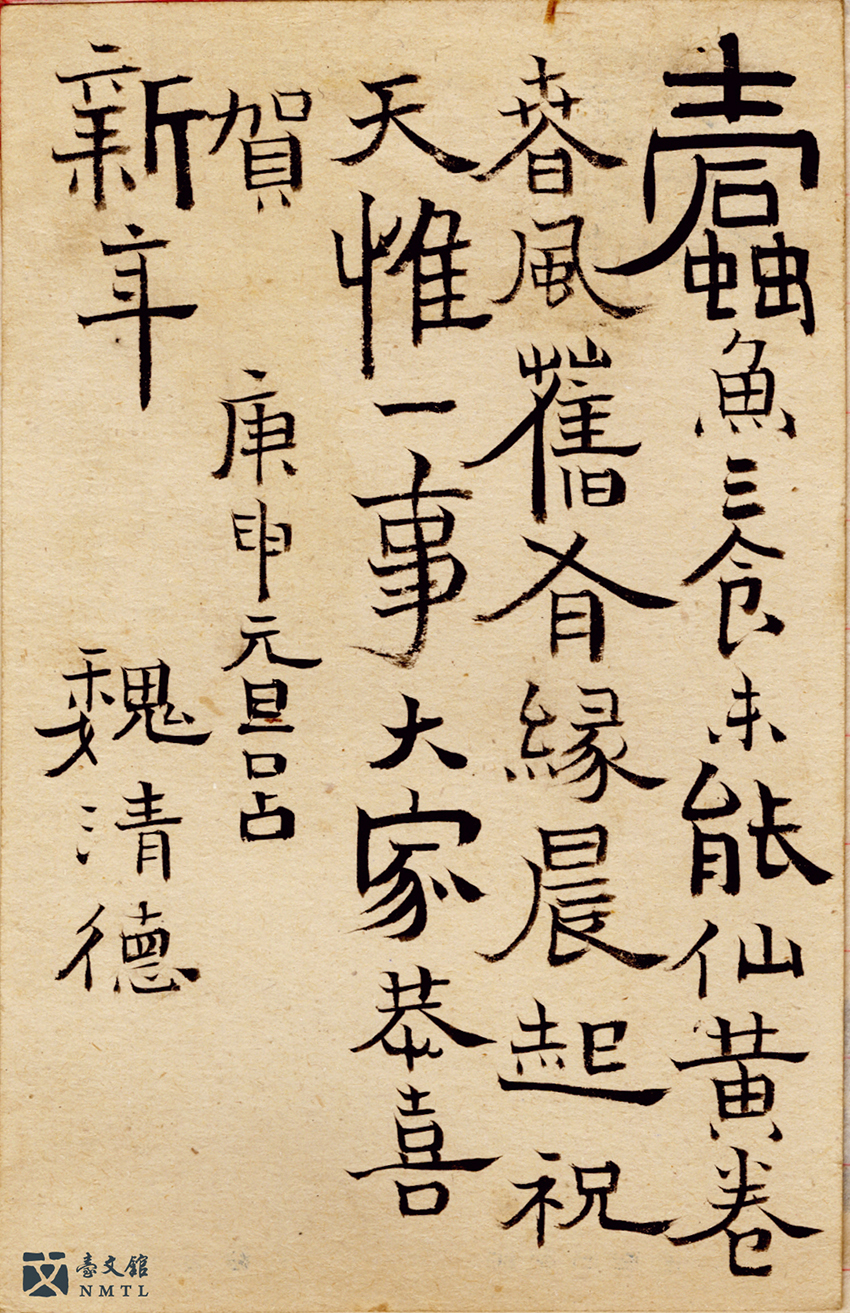 蠹魚三食未能仙黃卷
春風舊有緣晨起祝
天惟一事大家恭喜
賀
庚申元旦口占
新年
魏清德
臺文館
NMTL